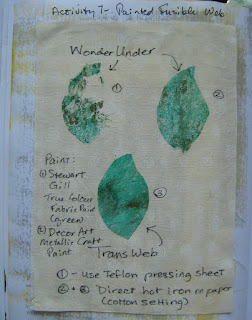 Activity 7 - Painted Fusible Web
WonderUnder
①
②
Paint:
① Stewart
Gill
True Colour
Fabric Paint
(green)
② DecorArt
Metallic Craft
Paint
③
TransWeb
① - use Teflon pressing sheet
② + ③ Direct hot iron on paper
(cotton setting)